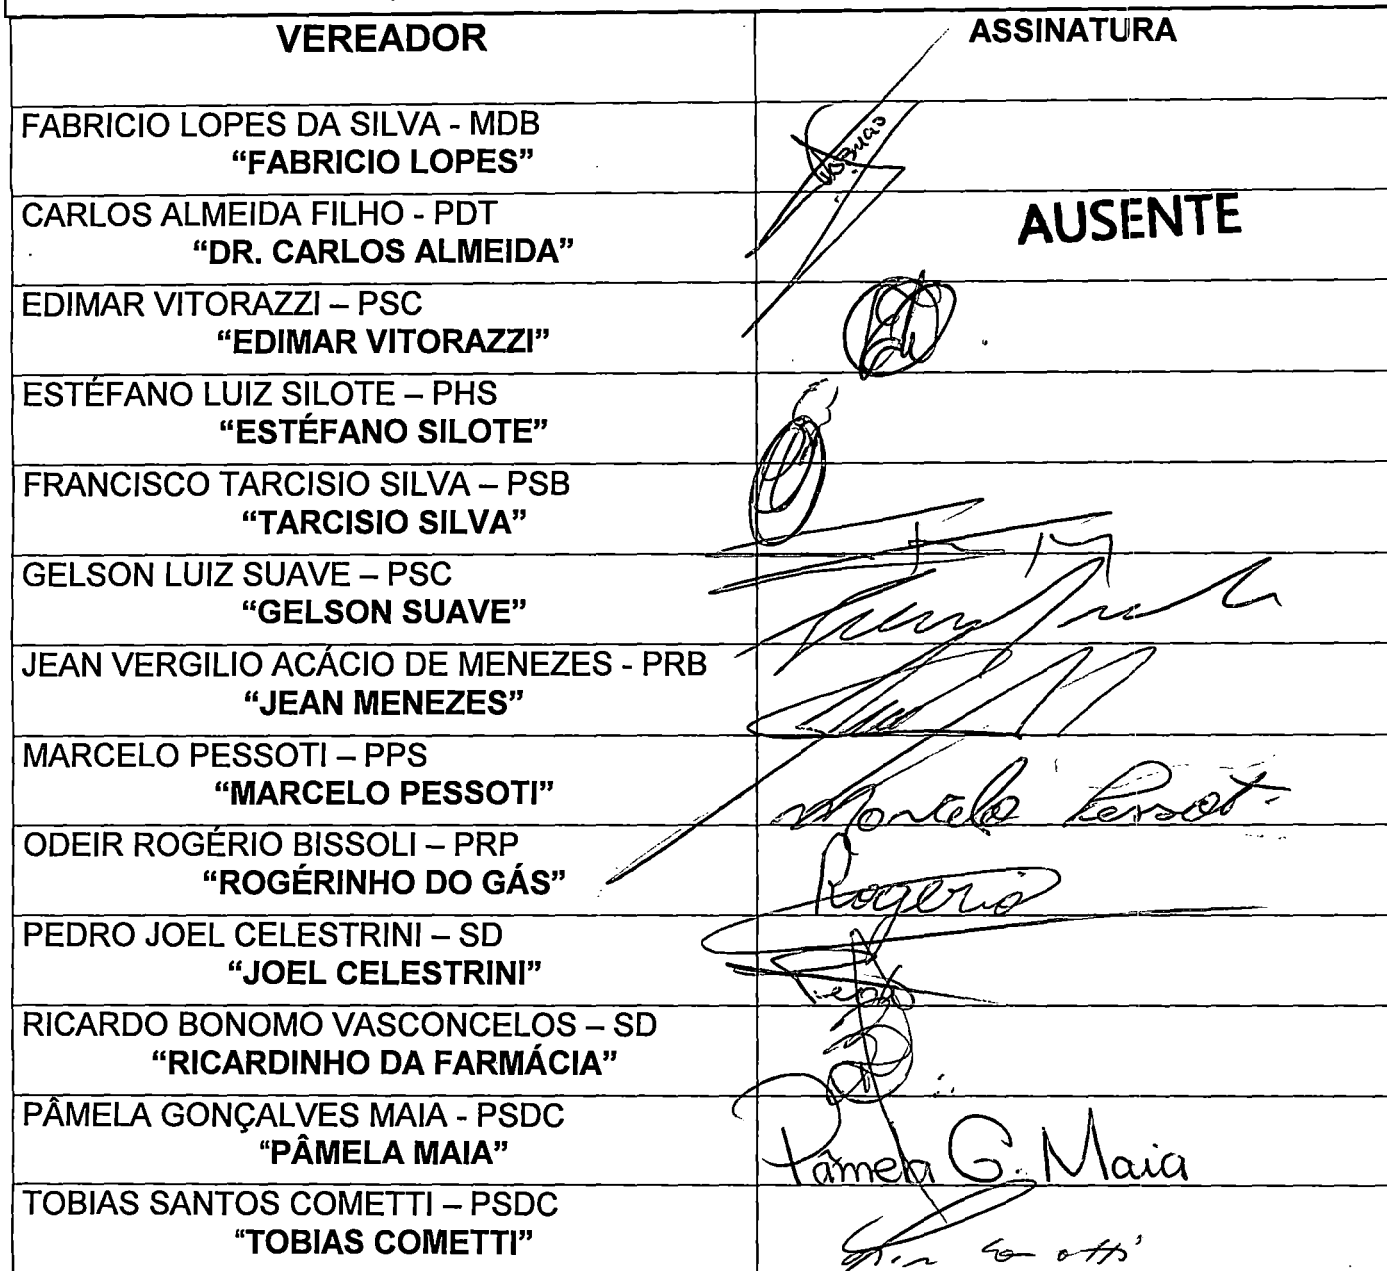 VEREADOR ASSINATURA
FABRICIO LOPES DA SILVA - MDB
“FABRICIO LOPES”
CARLOS ALMEIDA FILHO - PDT AUSENTE
“DR. CARLOS ALMEIDA”
EDIMAR VITORAZZI – PSC
“EDIMAR VITORAZZI”
ESTÉFANO LUIZ SILOTE – PHS
“ESTÉFANO SILOTE”
FRANCISCO TARCISIO SILVA – PSB
“TARCISIO SILVA”
GELSON LUIZ SUAVE – PSC
“GELSON SUAVE”
JEAN VERGILIO ACÁCIO DE MENEZES - PRB
“JEAN MENEZES”
MARCELO PESSOTI – PPS
“MARCELO PESSOTI” Marcelo Pessoti
ODEIR ROGÉRIO BISSOLI – PRP
“ROGÉRINHO DO GÁS” Rogerio
PEDRO JOEL CELESTRINI – SD
“JOEL CELESTRINI”
RICARDO BONOMO VASCONCELOS – SD
“RICARDINHO DA FARMÁCIA”
PÂMELA GONÇALVES MAIA - PSDC
“PÂMELA MAIA” Pâmela G. Maia
TOBIAS SANTOS COMETTI – PSDC
“TOBIAS COMETTI”